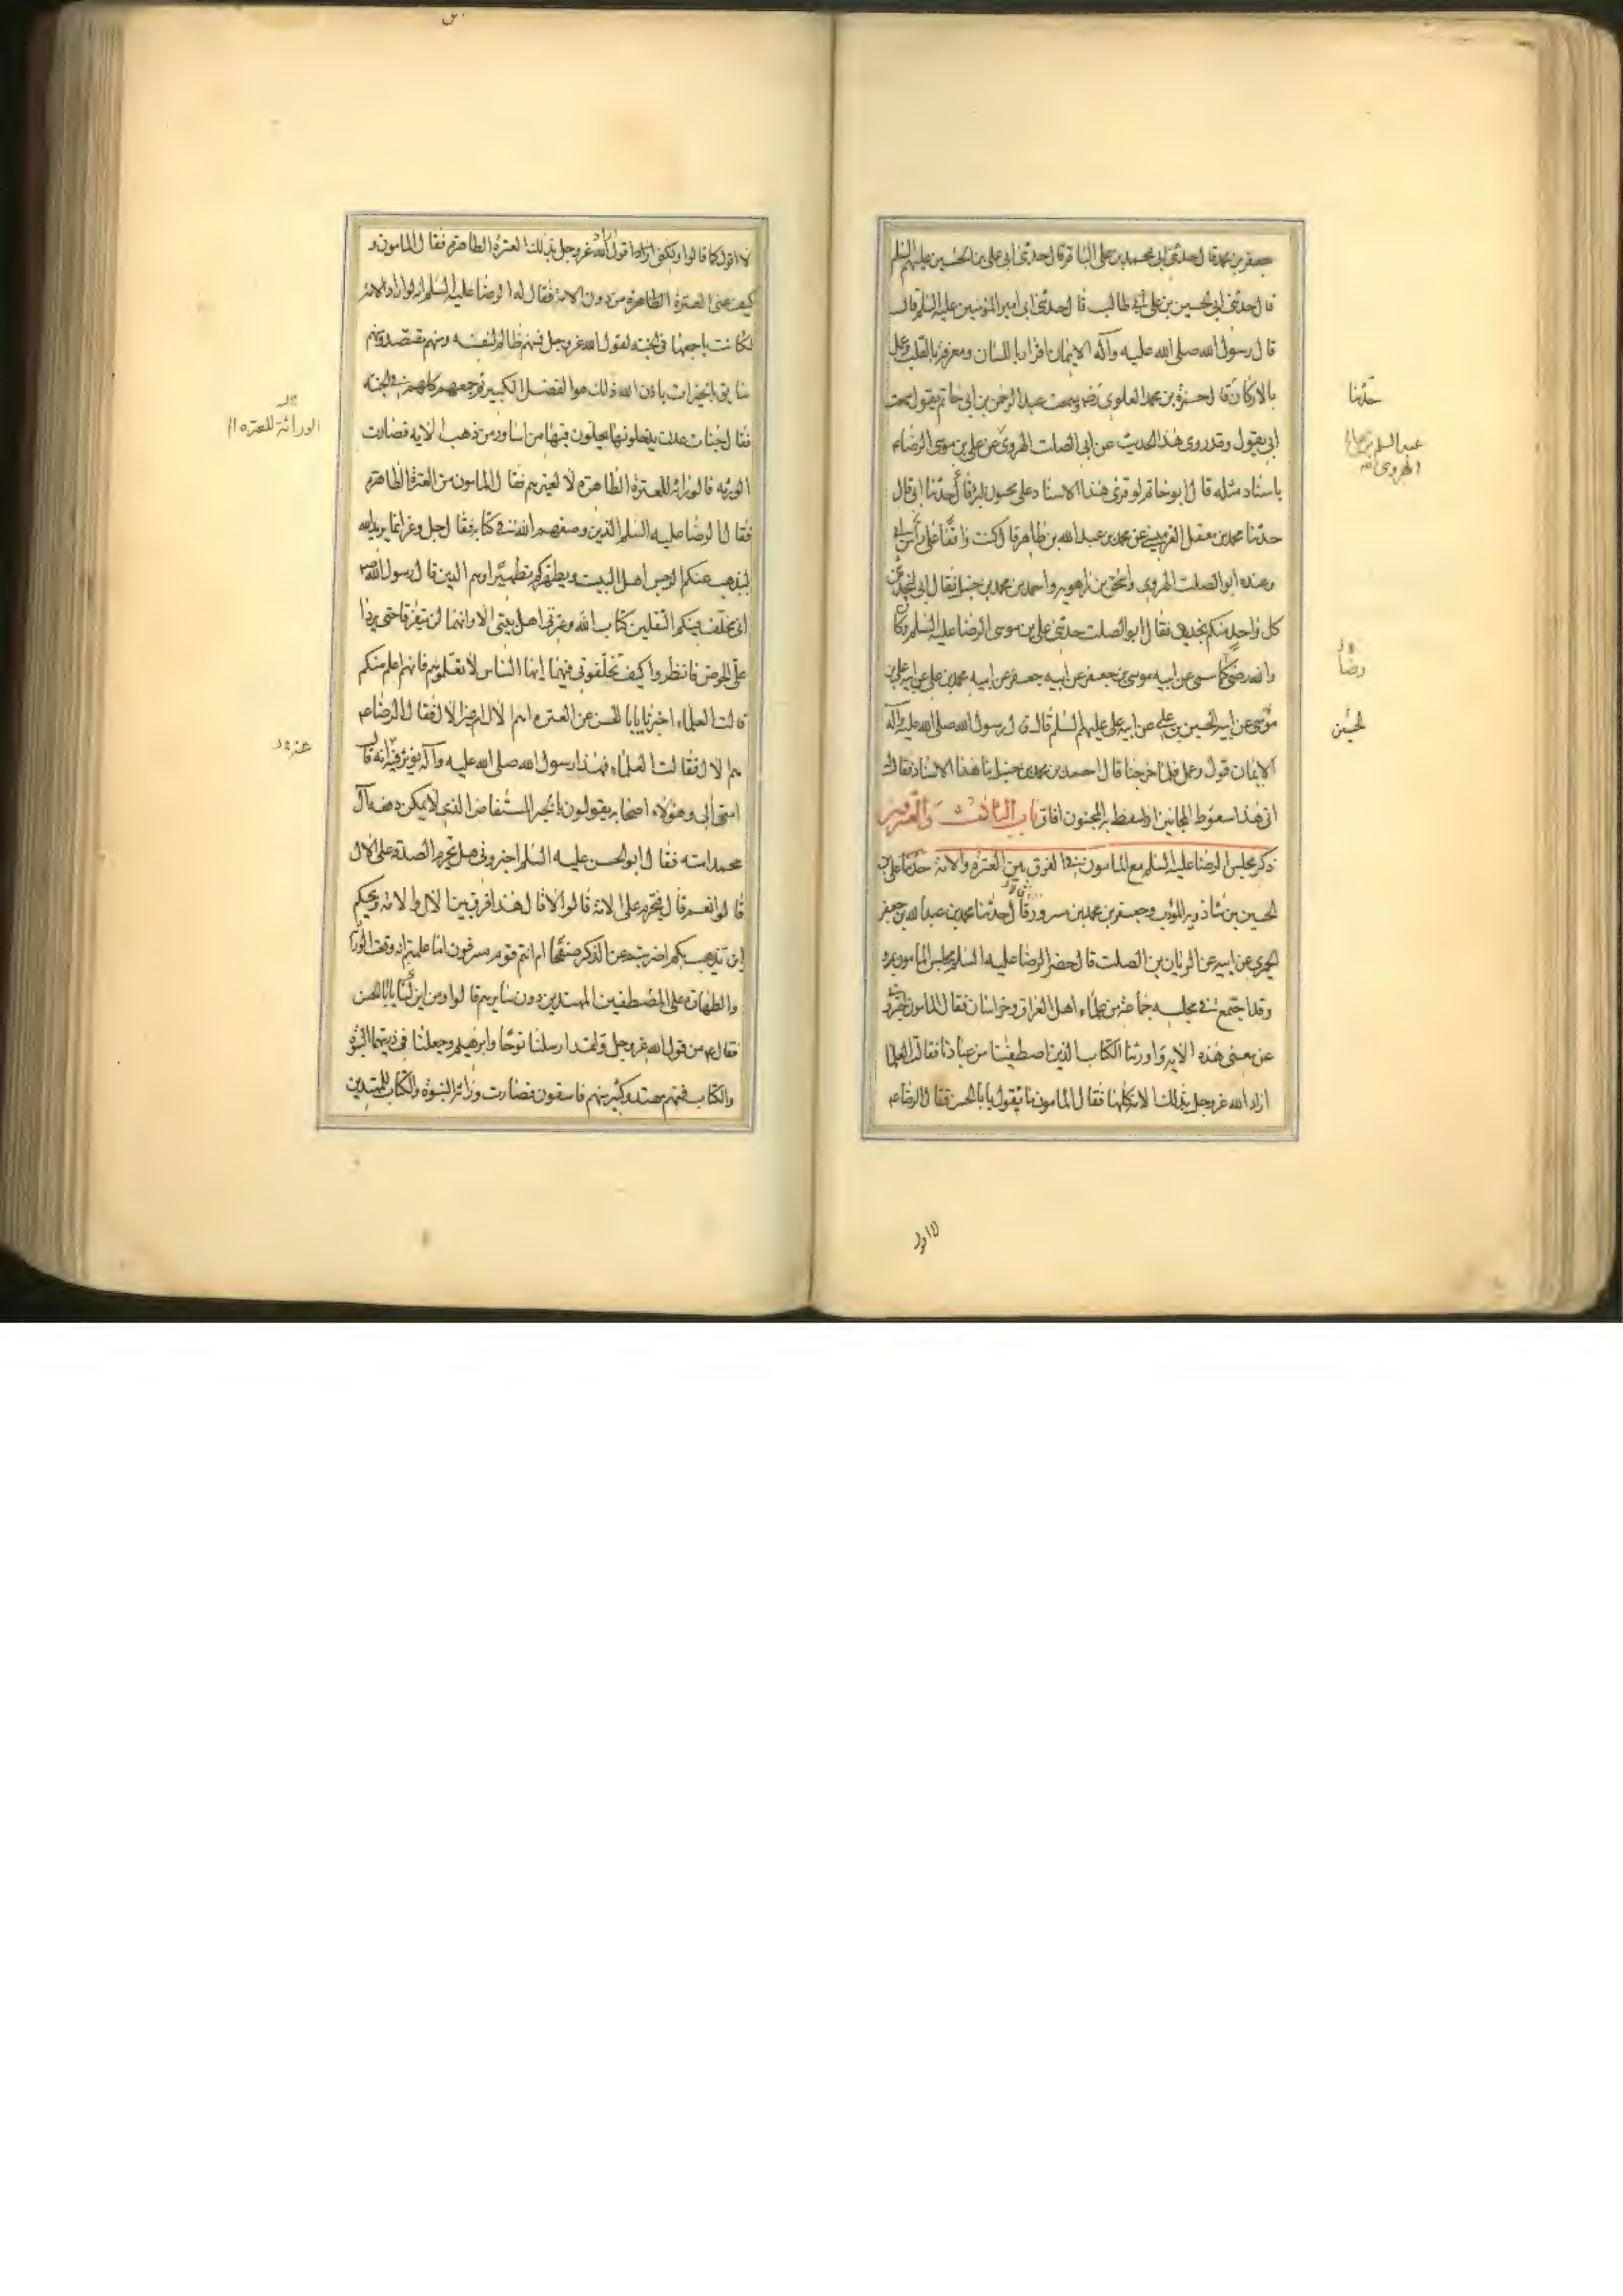 جعفر بن محمد قال حدثنی ابی محمد بن علی الباقر قال حدثنی ابی علی بن الحسین علیهم السلم
قال حدثنی ابی الحسین بن علی بن ابی طالب قال حدثنی ابی امیر المؤمنین علیه السلم قال
قال رسول الله صلی الله علیه وآله الایمان اقرار باللسان ومعرفة بالقلب وعمل
بالارکان قال حمزة بن محمد العلوی رضه وسمعت عبد الرحمن بن ابی حاتم یقول سمعت
ابی یقول وقد روی هذا الحدیث عن ابی الصلت الهروی عن علی بن موسی الرضا ء
باسناد مثله قال ابو حاتم لو قرئ هذا الاسناد علی مجنون لبرئ حدثنا ابی قال
حدثنا محمد بن معقل القرمیسینی عن محمد بن عبد الله بن طاهر قال کنت واقفا علی راس ابی
وعنده ابو الصلت الهروی واسحق بن راهویه واحمد بن محمد بن حنبل فقال ابی لیحدثنی
کل واحد منکم بحدیث فقال ابو الصلت حدثنی علی بن موسی الرضا علیه السلم وکان
والله رضی کما سمی عن ابیه موسی بن جعفر عن ابیه جعفر عن ابیه محمد بن علی عن ابیه علی بن
عن ابیه الحسین بن علی عن ابیه علی علیهم السلم قال قال رسول الله صلی الله علیه وآله
الایمان قول وعمل فلما خرجنا قال احمد بن محمد بن حنبل ما هذا الاسناد فقال له
ابی هذا سعوط المجانین اذا سعط به المجنون افاق باب الثالث والعشرین
ذکر مجلس الرضا علیه السلم مع المامون فی الفرق بین العترة والامة حدثنا علی بن
الحسین بن شاذویه المؤدب وجعفر بن محمد بن مسرور قال حدثنا محمد بن عبد الله بن جعفر
الحمیری عن ابیه عن الریان بن الصلت قال حضر الرضا علیه السلم مجلس المامون بمرو
وقد اجتمع فی مجلسه جماعة من علماء اهل العراق وخراسان فقال المامون اخبرونی
عن معنی هذه الایة واورثنا الکتاب الذین اصطفینا من عبادنا فقالت العلماء
اراد الله عز وجل بذلک الامة کلها فقال المامون ما یقول یا ابا الحسن فقال الرضا ء
حدثنا
عبد السلم بن صالح
الهروی
رضا
الحسین
لا اقول
لا اقول کما قالوا ولکنی اقول اراد الله عز وجل بذلک العترة الطاهرة فقال المامون و
کیف عنی العترة الطاهرة من دون الامة فقال له الرضا علیه السلم انه لو اراد الامة
لکانت باجمعها فی الجنة لقول الله عز وجل فمنهم ظالم لنفسه ومنهم مقتصد ومنهم
سابق بالخیرات باذن الله ذلک هو الفضل الکبیر ثم جمعهم کلهم فی الجنة
فقال جنات عدن یدخلونها یحلون فیها من اساور من ذهب الایة فصارت
الورثه فالوراثة للعترة الطاهرة لا لغیرهم فقال المامون من العترة الطاهرة
فقال الرضا علیه السلم الذین وصفهم الله فی کتابه فقال جل وعز انما یرید الله
لیذهب عنکم الرجس اهل البیت ویطهرکم تطهیرا وهم الذین قال رسول الله ص
انی مخلف فیکم الثقلین کتاب الله وعترتی اهل بیتی الا وانهما لن یفترقا حتی یردا
علی الحوض فانظروا کیف تخلفونی فیهما ایها الناس لا تعلموهم فانهم اعلم منکم
قالت العلماء اخبرنا یا ابا الحسن عن العترة اهم الال ام غیر الال فقال الرضا ء
هم الال فقالت العلماء فهذا رسول الله صلی الله علیه وآله یؤثر عنه انه قال
امتی آلی وهؤلاء اصحابه یقولون بالخبر المستفاض الذی لا یمکن دفعه آل
محمد امته فقال ابو الحسن علیه السلم اخبرونی هل تحرم الصدقة علی الال
قالوا نعم قال فتحرم علی الامة قالوا لا قال هذا فرق بین الال والامة ویحکم
این یذهب بکم اضربتم عن الذکر صفحا ام انتم قوم مسرفون اما علمتم انه وقعت الوراثة
والطهارة علی المصطفین المهتدین دون سایرهم قالوا ومن این یا ابا الحسن
فقال ء من قول الله عز وجل ولقد ارسلنا نوحا وابرهیم وجعلنا فی ذریتهما النبوة
والکتاب فمنهم مهتد وکثیر منهم فاسقون فصارت وراثة النبوة والکتاب للمهتدین
الوراثة للعترة
عنه